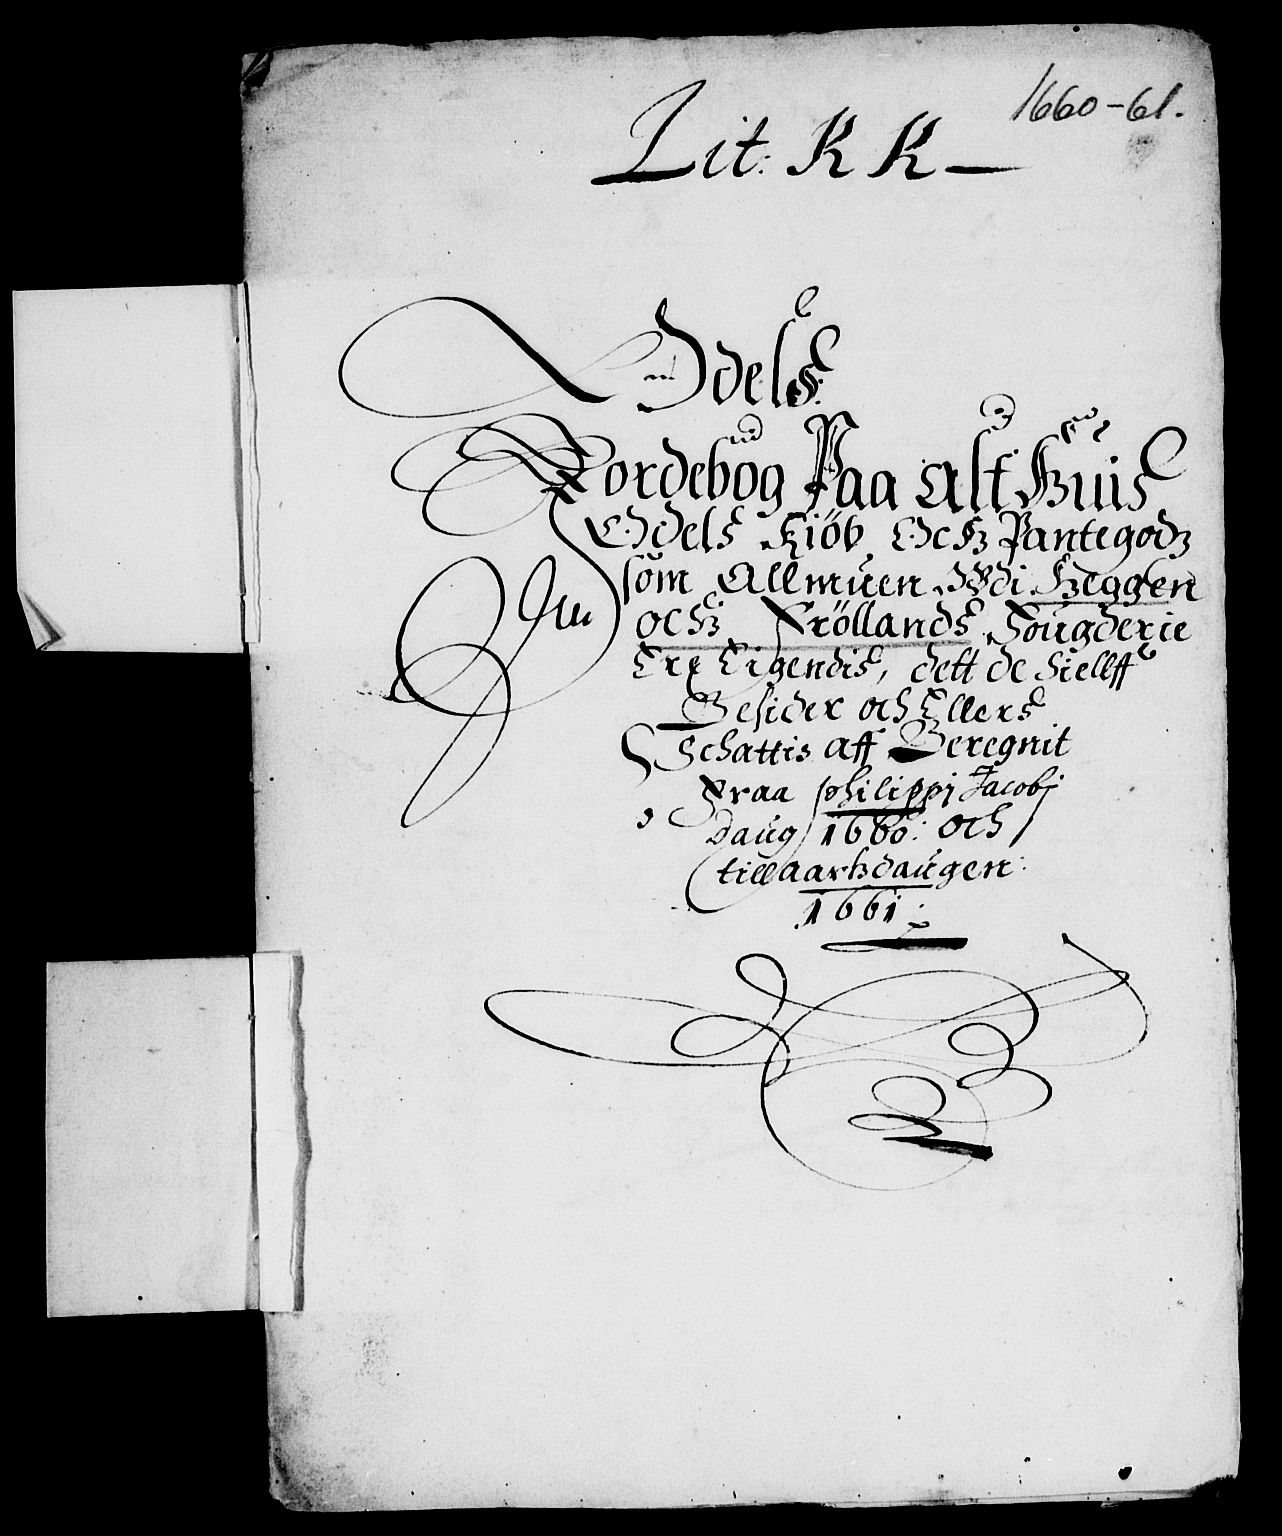 1660-61.
Lit: KK
Odels
Jordebog Paa alt Huis
Odels Kiöb Och Pantegodz
som Allmuen Udi Heggen
och Fröllands Fougderie
Ere Eigendis, dett de Sielff
Besider och Ellers
Schattis aff Beregnit
Fraa philippj Jacobj
Daug 1660: och
till aarhdaugen:
1661: